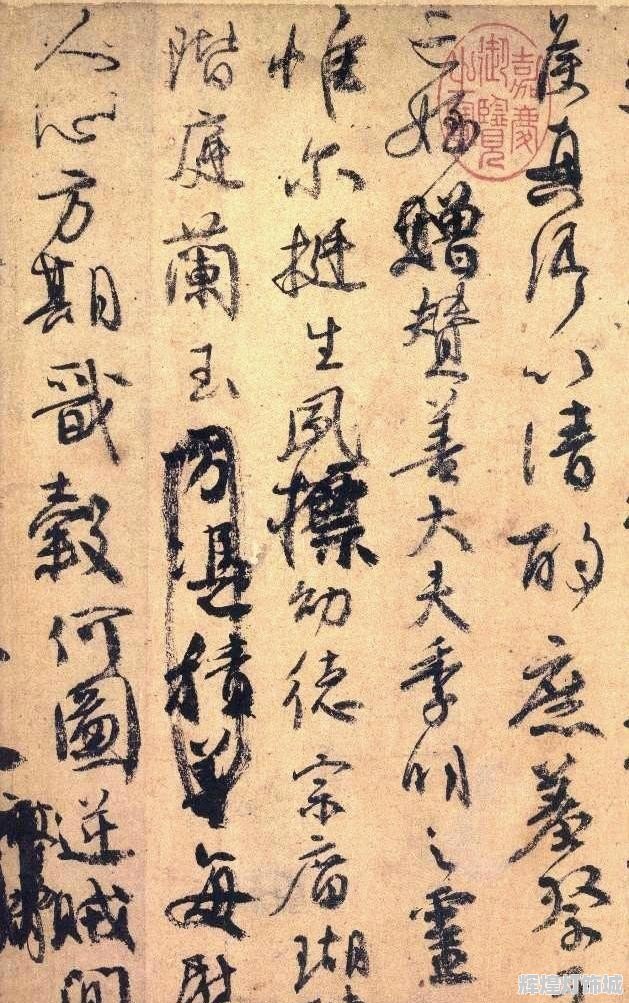 侯真卿以清酌庶羞祭
亡姪贈贊善大夫季明之靈
惟尔挺生夙標幼德宗廟瑚
階庭蘭玉方憑積善每慰
人心方期戩穀何圖逆賊閒
嘉慶御覽之寶
辉煌灯饰城